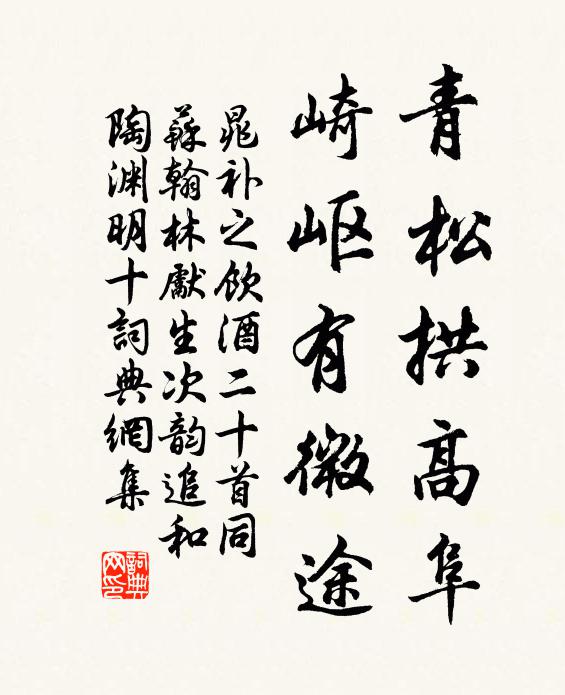 青松拱高阜
崎岖有微途
晁补之飲酒二十首同
蘇翰林獻生次韵追和
陶渊明十詞典網集
詞典
网印